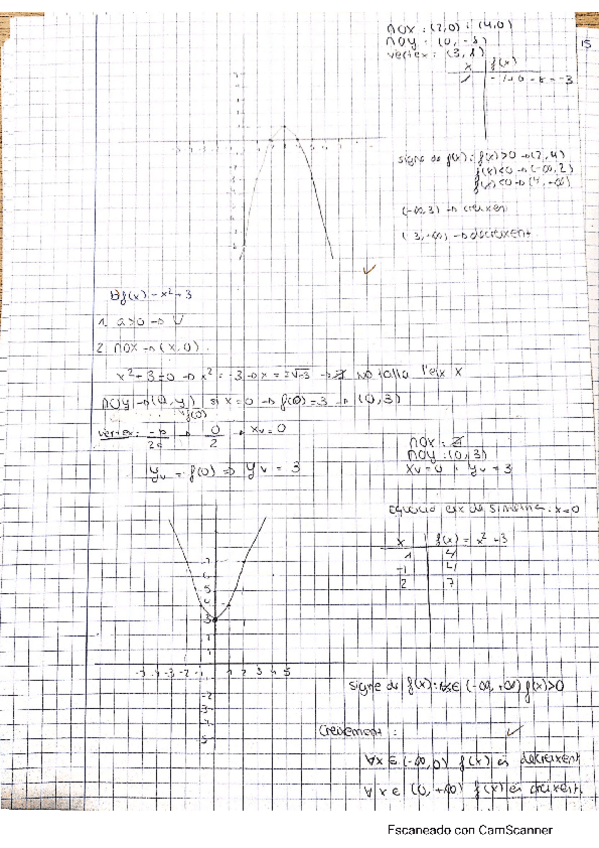 ∩OX : (2,0) i (4,0)
∩OY : (0, -8)
vèrtex : (3, 1)
15
x | f(x)
signe de f(x) : f(x)>0 → (2,4)
f(x)<0 → (-∞,2)
f(x)<0 → (4,+∞)
(-∞,3) → creixent
(3,-∞) → decreixent
b) f(x) = x² + 3
1. a>0 → U
2. ∩OX → (x,0)
x² + 3 = 0 → x² = -3 → x = ±√-3 → ∄ No talla l'eix x
∩OY → (0,y) si x=0 → f(0)=3 → (0,3)
f(0)
vèrtex: -b/2a → 0/2 → xv=0
yv = f(0) ⇒ yv = 3
∩OX : ∄
∩OY : (0,3)
xv=0 , yv=3
Equació eix de simetria : x=0
x | f(x) = x² +3
1 | 4
-1 | 4
2 | 7
signe de f(x) : ∀x∈(-∞,+∞) f(x)>0
Creixement :
∀x∈(-∞,0) f(x) és decreixent
∀x∈(0,+∞) f(x) és creixent
Escaneado con CamScanner